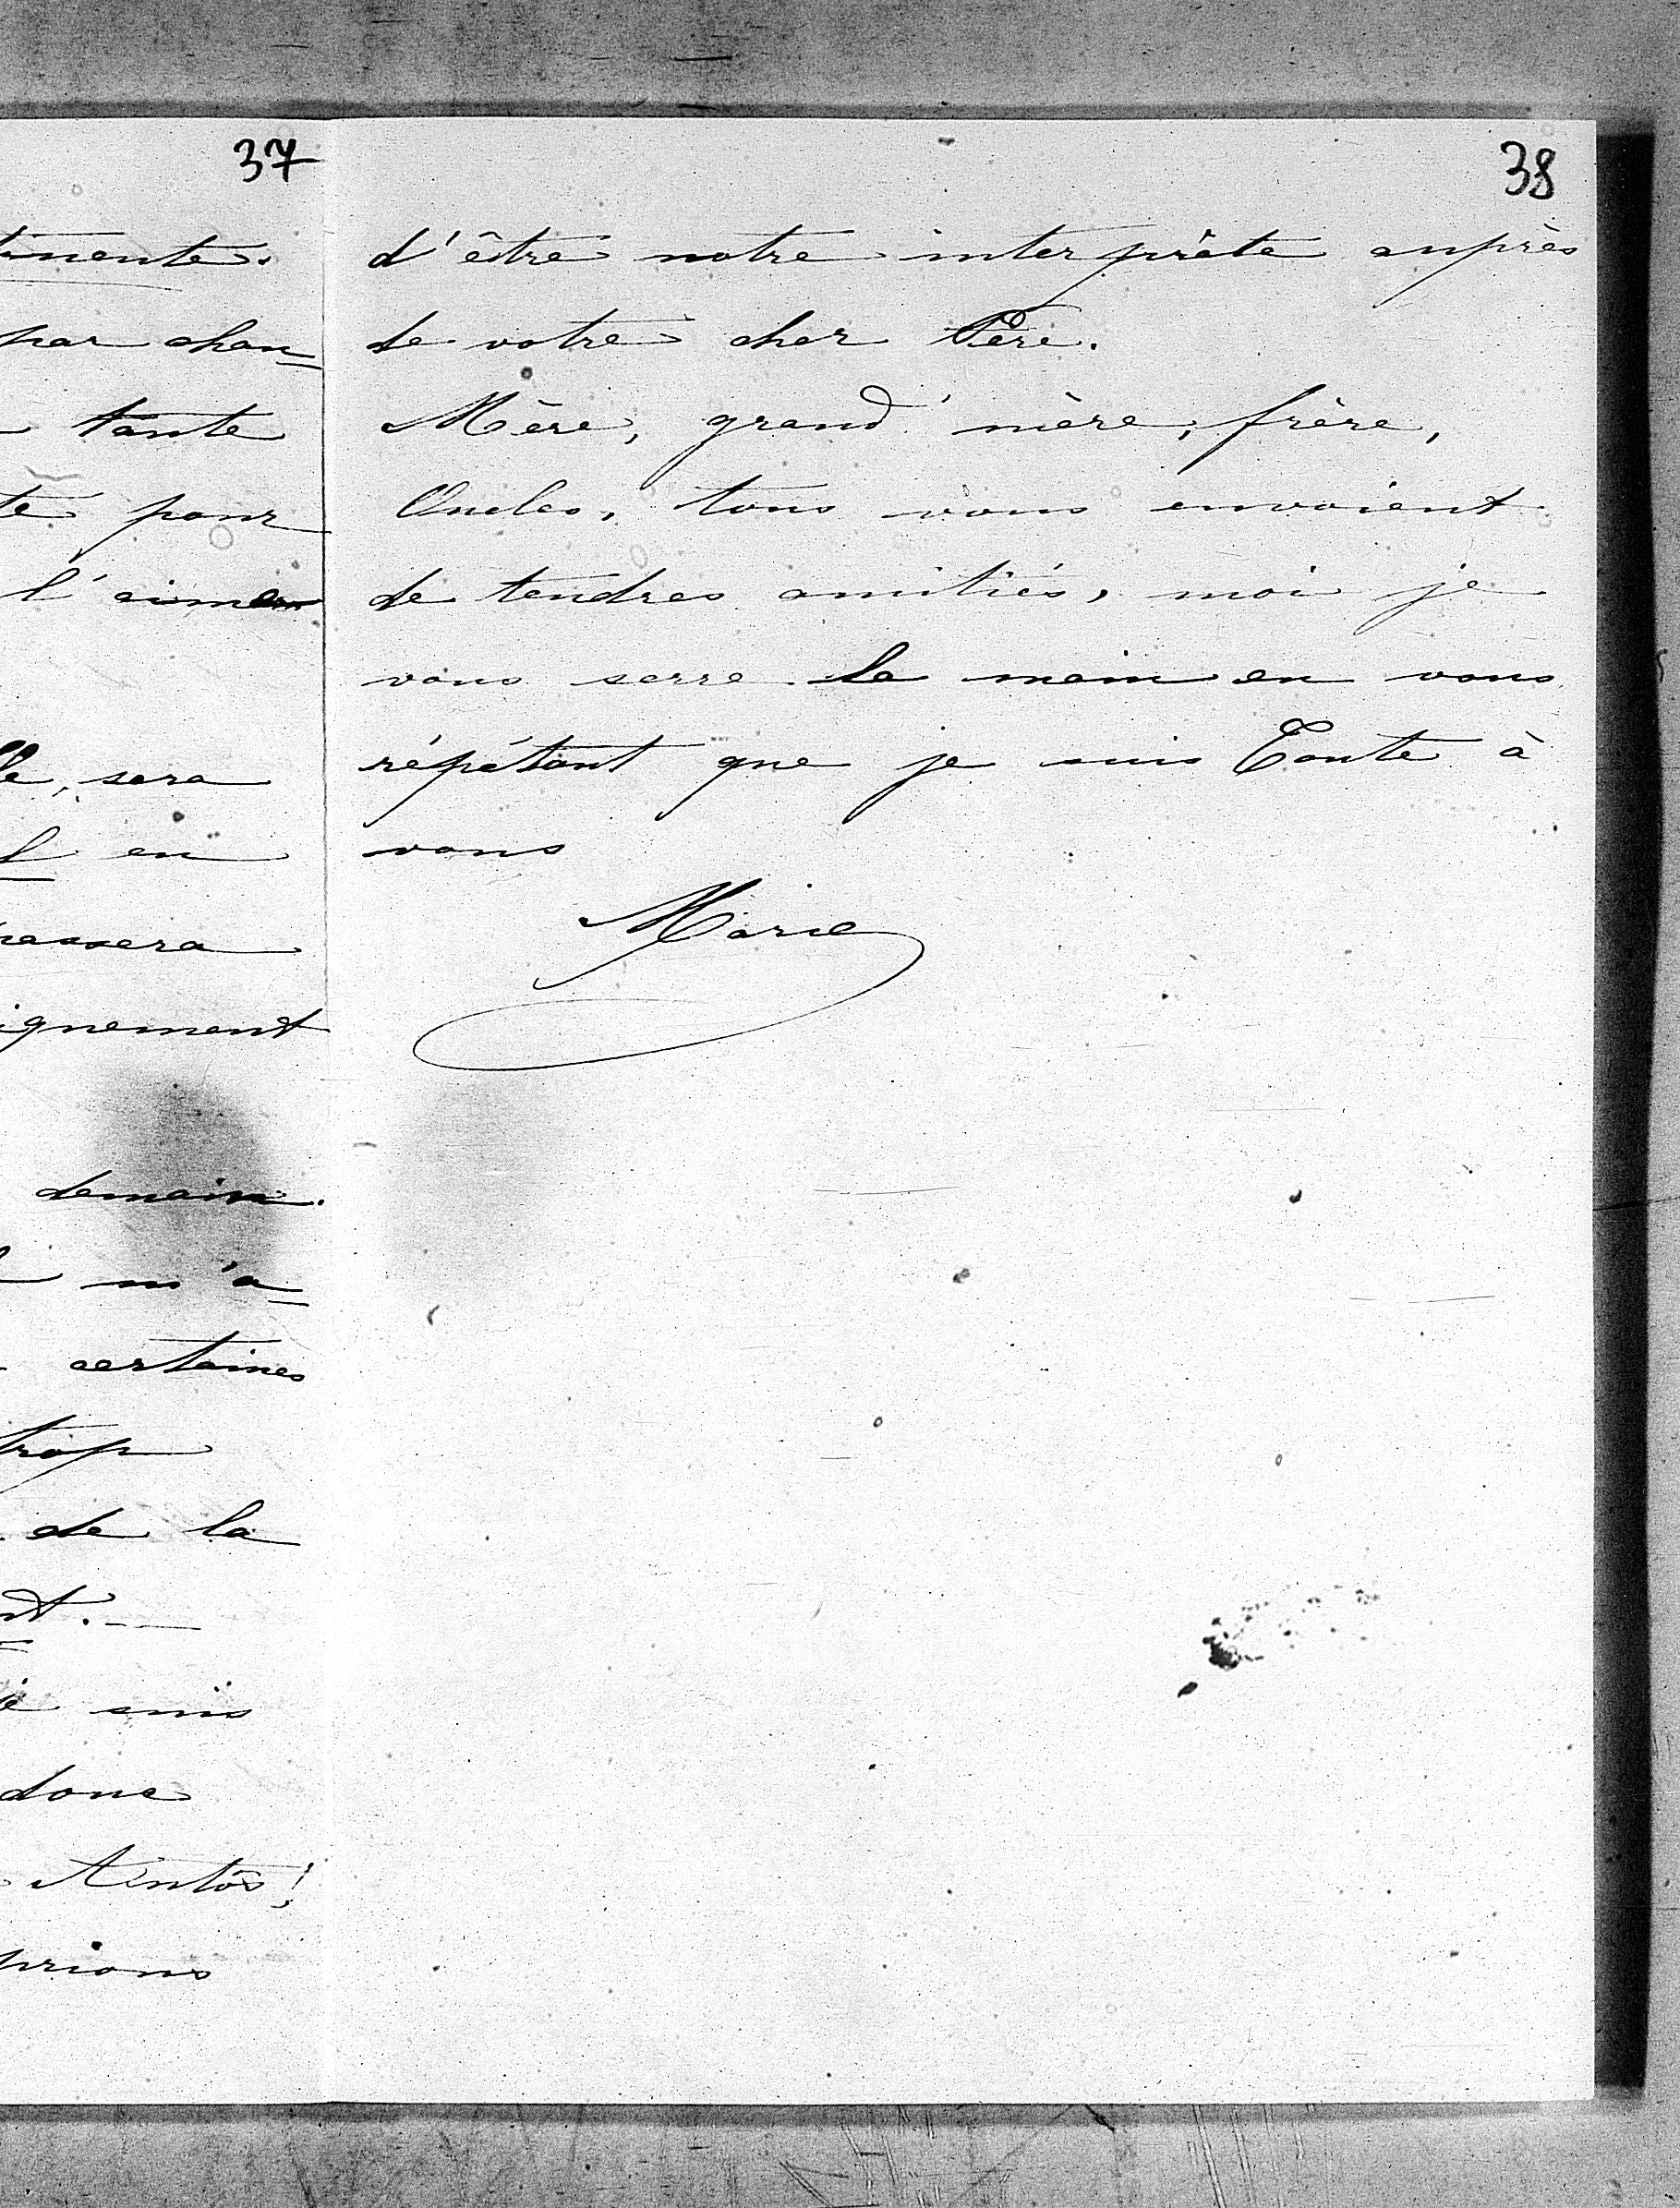 37
timents.
par chan=
tante
pour
l'aimer
sera
en
passera
ignement
demain.
m'a=
certaines
trop
de la
suis
donc
prions
38
d'être notre interprète auprès
de votre cher Père.
Mère, grand'mère, frère,
Oncles, tous vous envoient
de tendres amitiés, moi je
vous serre la main en vous
répétant que je suis Toute à
vous
Marie